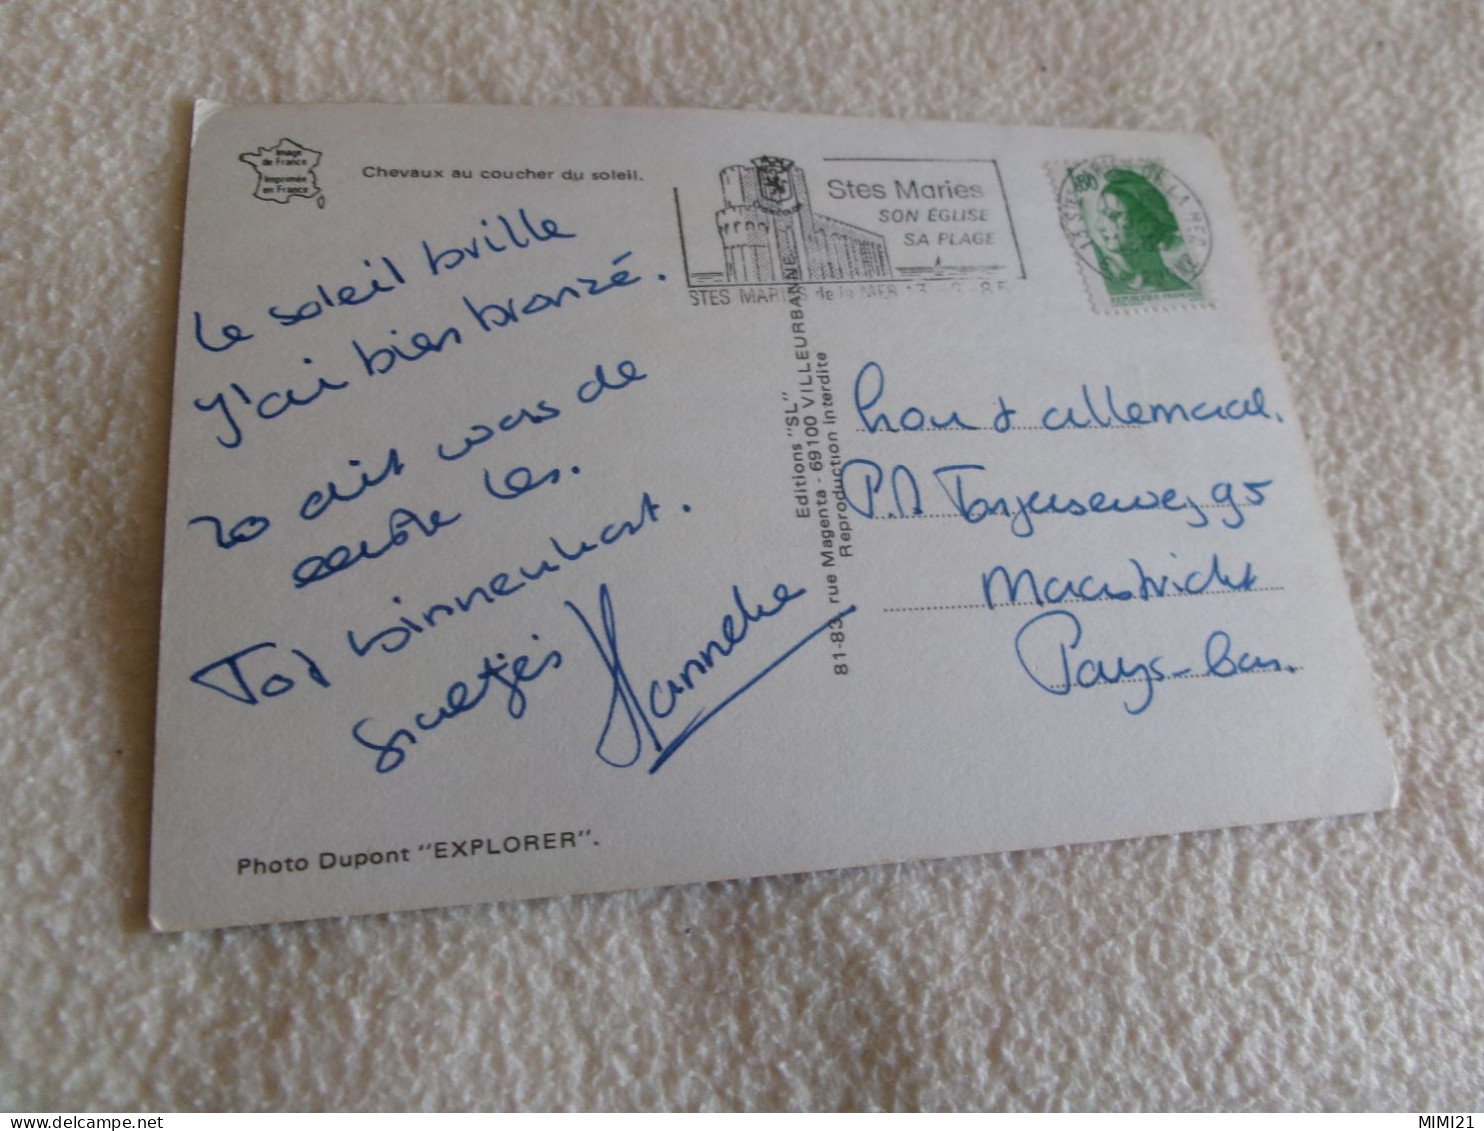 Image
de France
Imprimée
en France
Chevaux au coucher du soleil.
Le soleil brille
J'ai bien bronzé.
zo dit was de
eerste les.
Tot binnenkort.
groetjes Hanneke
Photo Dupont "EXPLORER".
Editions "SL"
81-83, rue Magenta - 69100 VILLEURBANNE
Reproduction interdite
Stes Maries
SON ÉGLISE
SA PLAGE
STES MARIES de la MER 13 - 85
1,80
DE LA MER
REPUBLIQUE FRANÇAISE
allemaal.
P.D. 95
Maastricht
Pays-bas.
delcampe.net
MIMI21